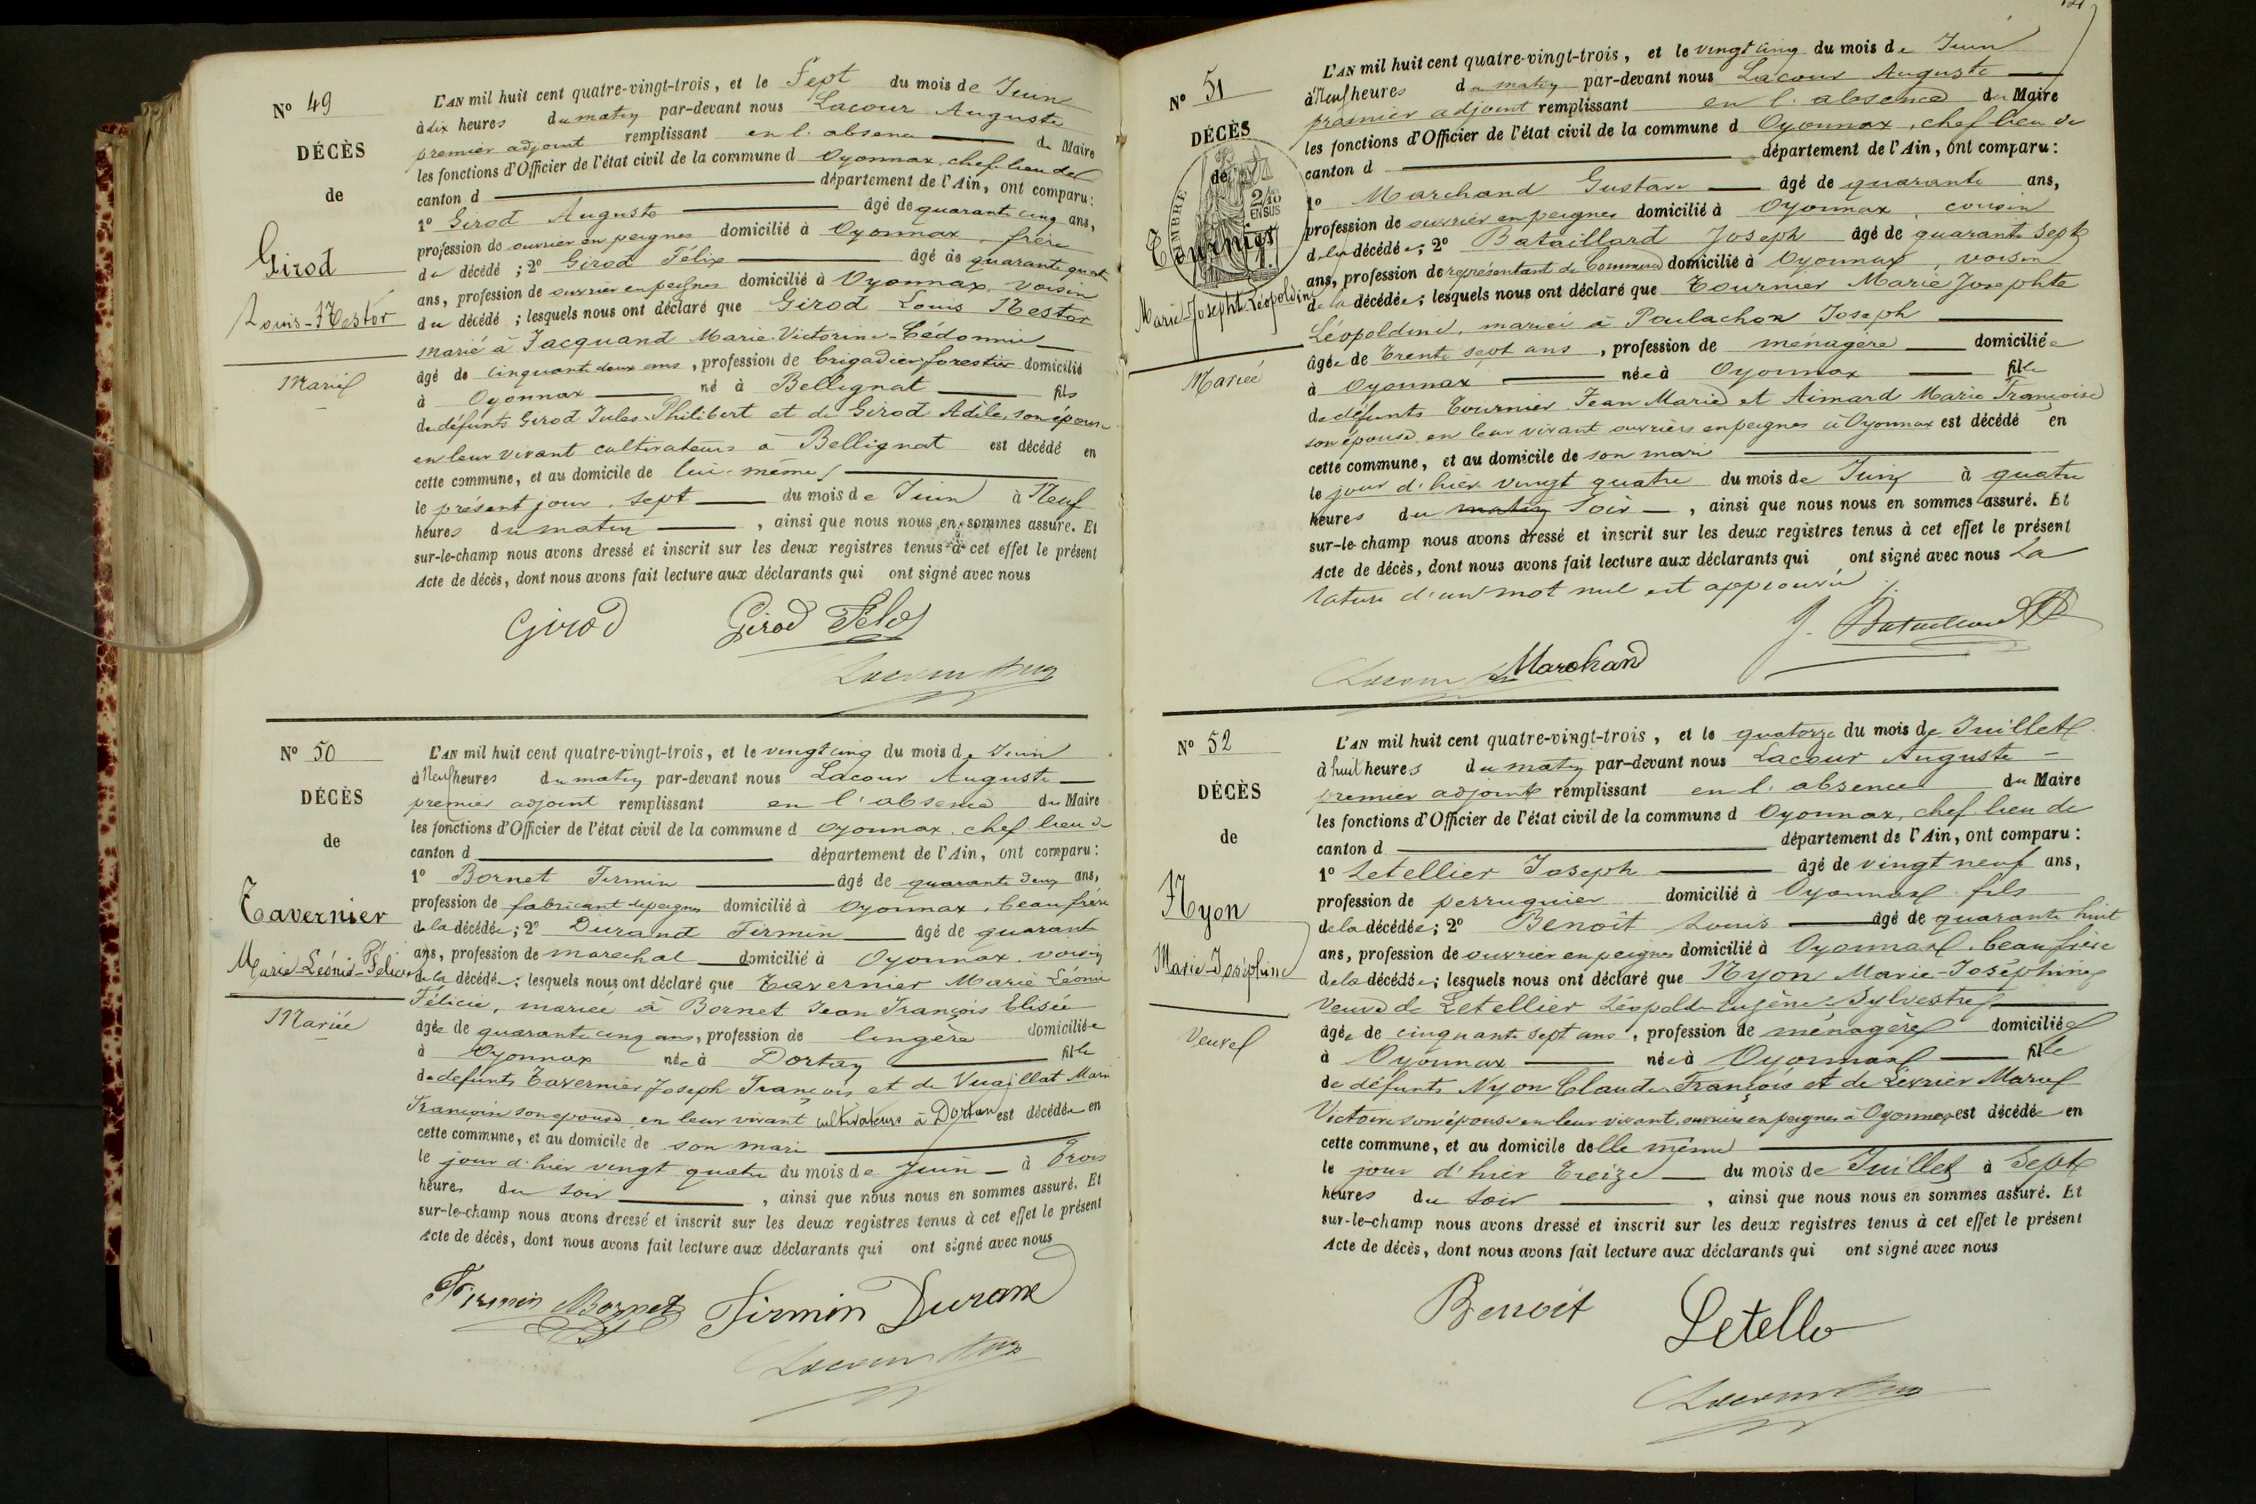 N° 49
DÉCÈS
de
Girod
Louis-Nestor
Marié
L'AN mil huit cent quatre-vingt-trois, et le Sept du mois de Juin
à dix heures du matin par-devant nous Lacour Auguste
premier adjoint remplissant en l'absence du Maire
les fonctions d'Officier de l'état civil de la commune d Oyonnax, chef lieu de
canton d département de l'Ain, ont comparu:
1° Girod Auguste âgé de quarante cinq ans,
profession de ouvrier en peignes domicilié à Oyonnax, frère
du décédé ; 2° Girod Félix âgé de quarante quatre
ans, profession de ouvrier en peignes domicilié à Oyonnax, voisin
du décédé ; lesquels nous ont déclaré que Girod Louis Nestor
marié à Jacquand Marie Victorine
âgé de cinquante deux ans, profession de brigadier forestier domicilié
à Oyonnax né à Bellignat fils
de défunts Girod Jules Philibert et de Girod Adèle, son épouse
en leur vivant cultivateurs à Bellignat est décédé en
cette commune, et au domicile de lui-même
le présent jour, sept du mois de Juin à Neuf
heures du matin , ainsi que nous nous en sommes assuré. Et
sur-le-champ nous avons dressé et inscrit sur les deux registres tenus à cet effet le présent
Acte de décès, dont nous avons fait lecture aux déclarants qui ont signé avec nous
Girod Girod Félix
Lacour Aug
N° 50
DÉCÈS
de
Tavernier
Marie-Léonie-Félicie
Mariée
L'AN mil huit cent quatre-vingt-trois, et le vingt cinq du mois de Juin
à Neuf heures du matin par-devant nous Lacour Auguste
premier adjoint remplissant en l'absence du Maire
les fonctions d'Officier de l'état civil de la commune d Oyonnax, chef lieu de
canton d département de l'Ain, ont comparu:
1° Bornet Firmin âgé de quarante deux ans,
profession de fabricant de peignes domicilié à Oyonnax, beau frère
de la décédée; 2° Durand Firmin âgé de quarante
ans, profession de marechal domicilié à Oyonnax, voisin
de la décédée; lesquels nous ont déclaré que Tavernier Marie Léonie
Félicie, mariée à Bornet Jean François Elisée
âgée de quarante cinq ans, profession de lingère domiciliée
à Oyonnax née à Dortan fille
de défunts Tavernier Joseph François et de Vuaillat Marie
Françoise son épouse en leur vivant cultivateurs à Dortan est décédée en
cette commune, et au domicile de son mari
le jour d'hier vingt quatre du mois de Juin à Trois
heures du soir , ainsi que nous nous en sommes assuré. Et
sur-le-champ nous avons dressé et inscrit sur les deux registres tenus à cet effet le présent
Acte de décès, dont nous avons fait lecture aux déclarants qui ont signé avec nous
Firmin Bornet Firmin Durand
Lacour Aug
N° 51
DÉCÈS
de
Tournier
Marie-Josephte-Léopoldine
Mariée
TIMBRE
2/10
EN SUS
L'AN mil huit cent quatre-vingt-trois, et le vingt cinq du mois de Juin
à Neuf heures du matin par-devant nous Lacour Auguste
premier adjoint remplissant en l'absence du Maire
les fonctions d'Officier de l'état civil de la commune d Oyonnax, chef lieu de
canton d département de l'Ain, ont comparu:
1° Marchand Gustave âgé de quarante ans,
profession de ouvrier en peignes domicilié à Oyonnax, cousin
de la décédée; 2° Bataillard Joseph âgé de quarante sept
ans, profession de représentant de Commerce domicilié à Oyonnax voisin
de la décédée; lesquels nous ont déclaré que Tournier Marie Josephte
Léopoldine, mariée à Poulachon Joseph
âgée de Trente sept ans, profession de ménagère domiciliée
à Oyonnax née à Oyonnax fille
de défunts Tournier Jean Marie et Aimard Marie Françoise
son épouse en leur vivant ouvriers en peignes à Oyonnax est décédé en
cette commune, et au domicile de son mari
le jour d'hier vingt quatre du mois de Juin à quatre
heures du matin Soir , ainsi que nous nous en sommes assuré. Et
sur-le-champ nous avons dressé et inscrit sur les deux registres tenus à cet effet le présent
Acte de décès, dont nous avons fait lecture aux déclarants qui ont signé avec nous La
rature d'un mot nul est approuvée
J. Bataillard
Lacour Marchand
N° 52
DÉCÈS
de
Nyon
Marie-Joséphine
Veuve
L'AN mil huit cent quatre-vingt-trois, et le quatorze du mois de Juillet
à huit heures du matin par-devant nous Lacour Auguste
premier adjoint remplissant en l'absence du Maire
les fonctions d'Officier de l'état civil de la commune d Oyonnax, chef lieu de
canton d département de l'Ain, ont comparu:
1° Letellier Joseph âgé de vingt neuf ans,
profession de perruquier domicilié à Oyonnax fils
de la décédée; 2° Benoît Louis âgé de quarante huit
ans, profession de ouvrier en peignes domicilié à Oyonnax, beau frère
de la décédée; lesquels nous ont déclaré que Nyon Marie-Joséphine
veuve de Letellier Léopold Eugène Sylvestre
âgée de cinquante sept ans, profession de ménagère domiciliée
à Oyonnax née à Oyonnax fille
de défunts Nyon Claude François et de Levrier Marie
Victoire son épouse en leur vivant ouvriers en peignes à Oyonnax est décédée en
cette commune, et au domicile delle même
le jour d'hier Treize du mois de Juillet à Sept
heures du soir , ainsi que nous nous en sommes assuré. Et
sur-le-champ nous avons dressé et inscrit sur les deux registres tenus à cet effet le présent
Acte de décès, dont nous avons fait lecture aux déclarants qui ont signé avec nous
Benoit Letellier
Lacour Aug